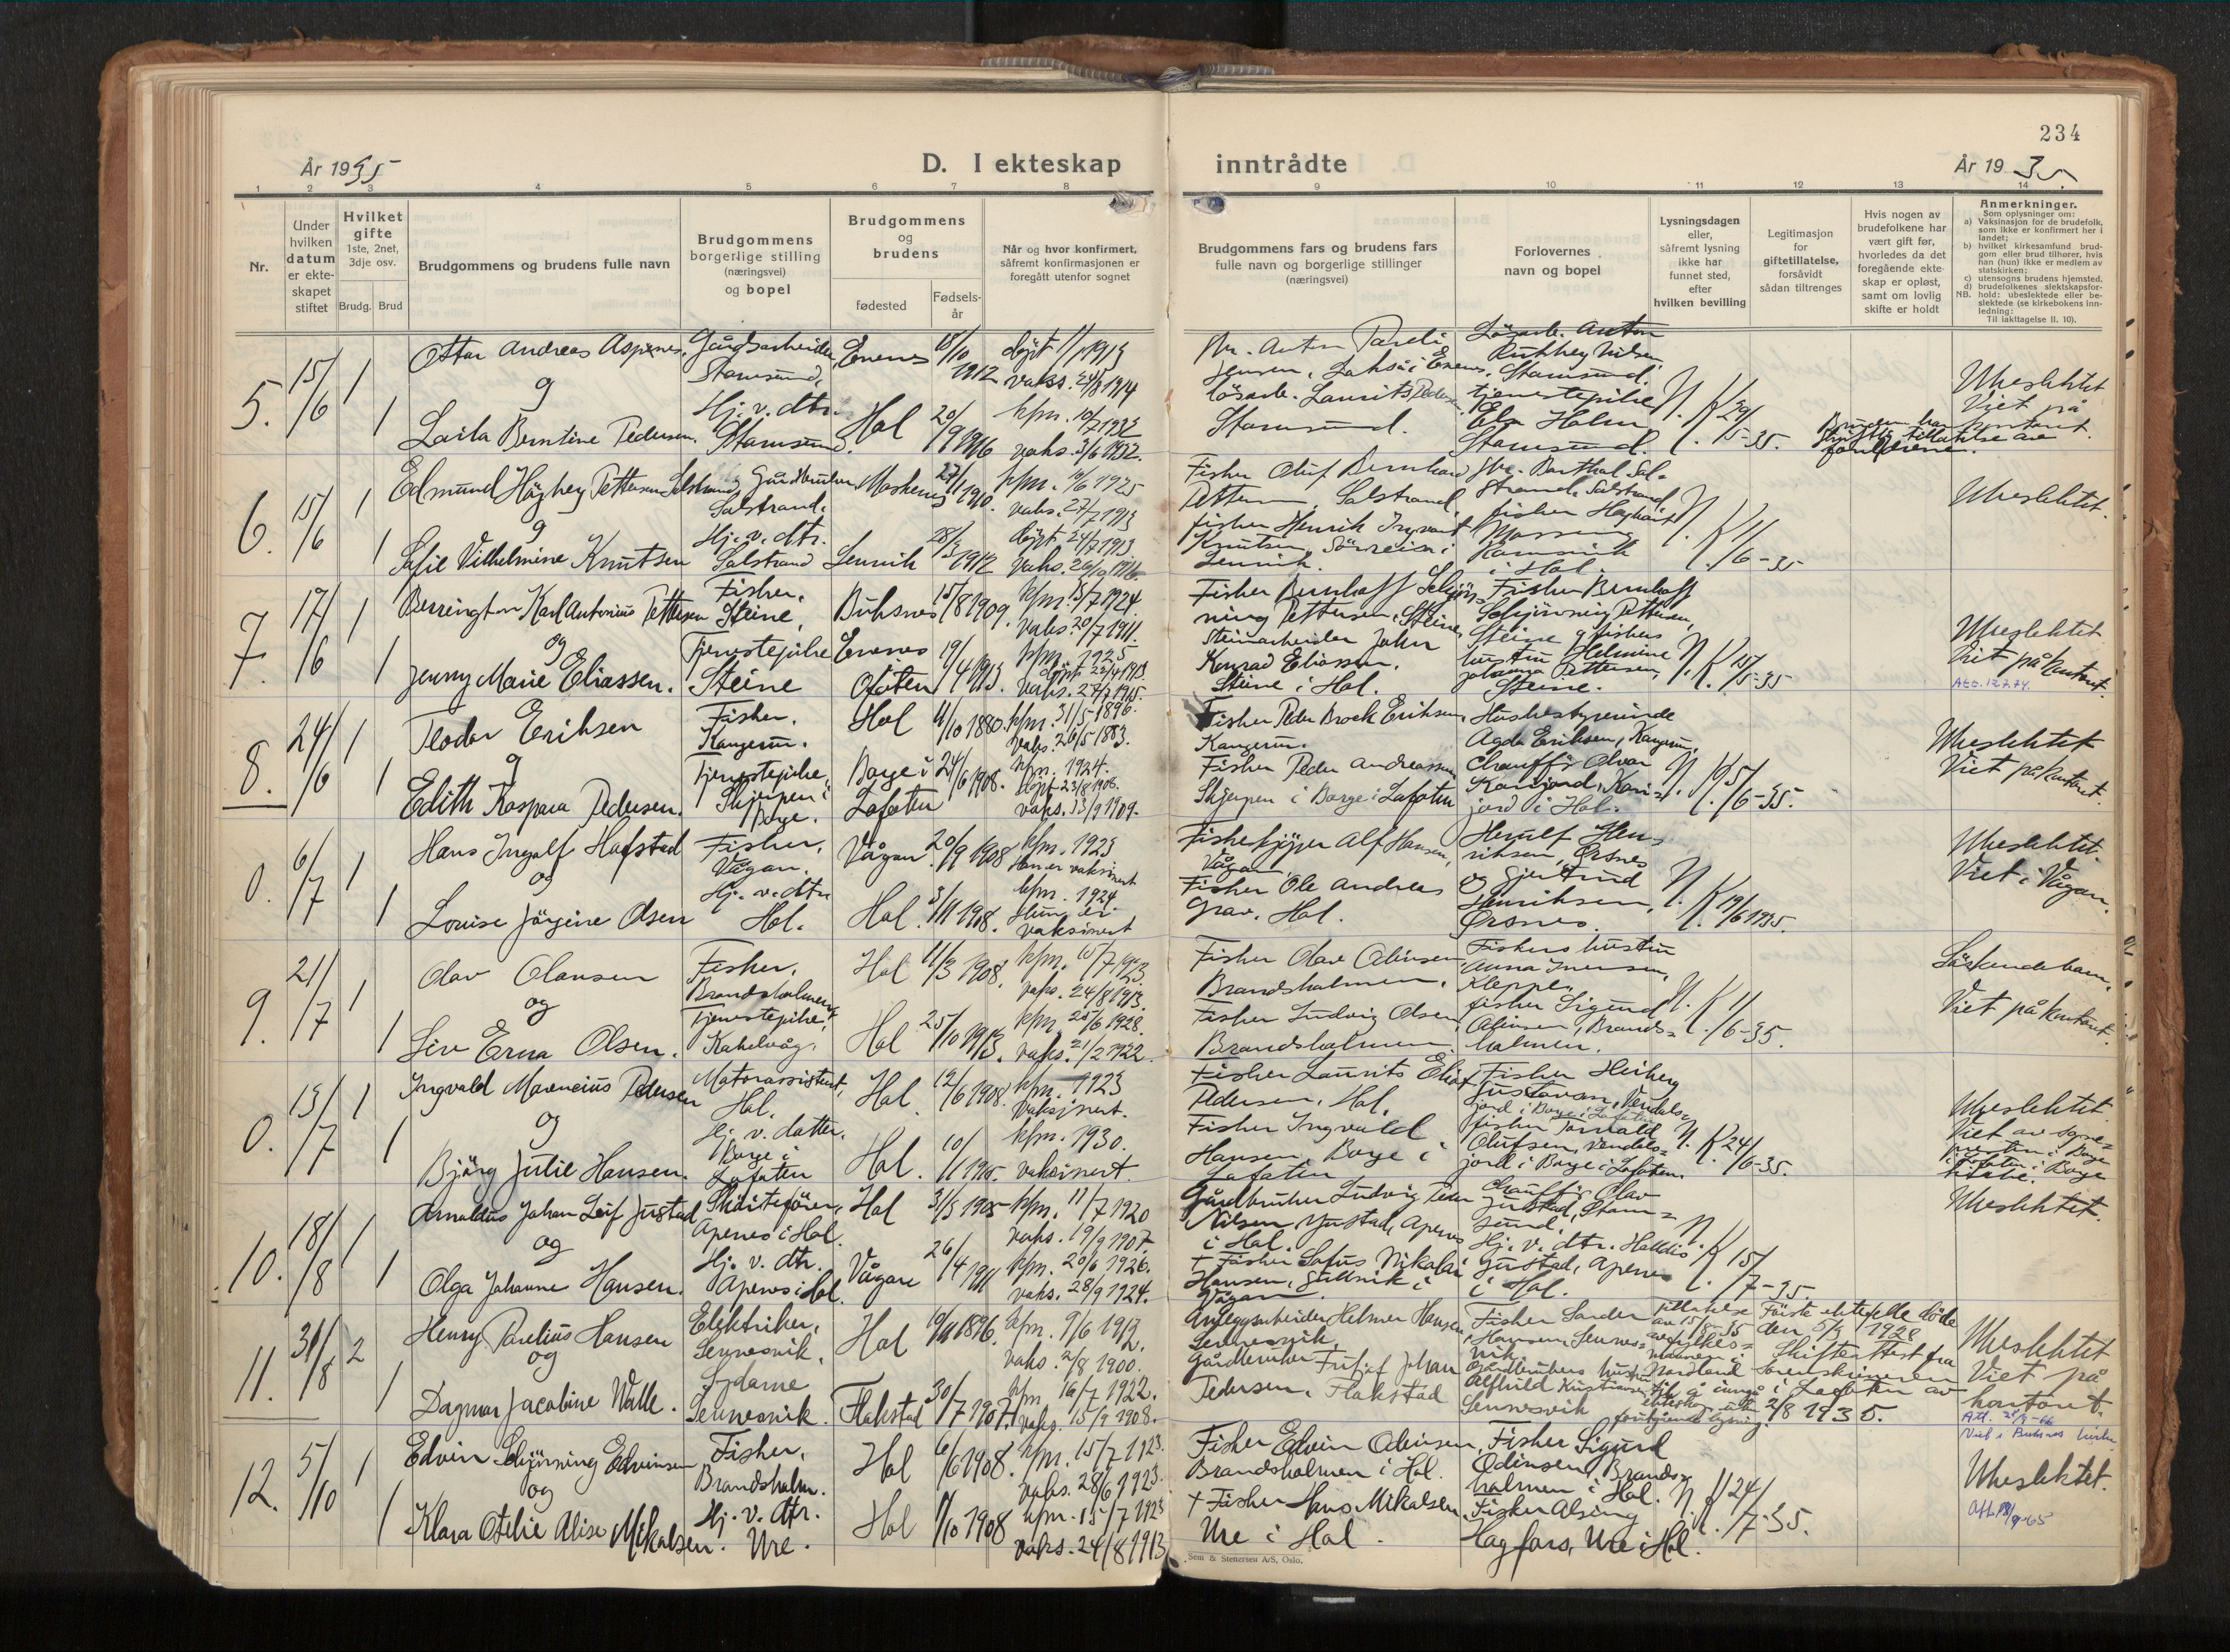 234
År 1935
D. I ekteskap
inntrådte
År 1935.
1 2 3 4 5 6 7 8 9 10 11 12 13 14
Nr.
Under
hvilken
datum
er ekte-
skapet
stiftet
Hvilket
gifte
1ste, 2net,
3dje osv.
Brudg. Brud
Brudgommens og brudens fulle navn
Brudgommens
borgerlige stilling
(næringsvei)
og bopel
Brudgommens
og
brudens
fødested
Fødsels-
år
Når og hvor konfirmert,
såfremt konfirmasjonen er
foregått utenfor sognet
Brudgommens fars og brudens fars
fulle navn og borgerlige stillinger
(næringsvei)
Forlovernes
navn og bopel
Lysningsdagen
eller,
såfremt lysning
ikke har
funnet sted,
efter
hvilken bevilling
Legitimasjon
for
giftetillatelse,
forsåvidt
sådan tiltrenges
Hvis nogen av
brudefolkene har
vært gift før,
hvorledes da det
foregående ekte-
skap er opløst,
samt om lovlig
skifte er holdt
Anmerkninger.
Som oplysninger om:
a) Vaksinasjon for de brudefolk,
som ikke er konfirmert her i
landet;
b) hvilket kirkesamfund brud-
gom eller brud tilhører, hvis
han (hun) ikke er medlem av
statskirken;
c) utensogns brudens hjemsted.
d) brudefolkenes slektskapsfor-
NB. hold: ubeslektede eller be-
slektede (se kirkebokens inn-
ledning:
Til iakttagelse II. 10).
5. 15/6 1
Ottar Andreas Aspenes.
Gårdsarbeider
Stamsund.
Evenes
1912
og
1 Laila Berntine Pedersen.
Hj. v. dtr.
Stamsund.
Hol
20/9 1916
kfm. 10/7 1932
vaks. 3/6 1922.
Jensen,
Stamsund.
tjenestepike
Else Holm
Stamsund.
N. K. 29/5-35.
Ubeslektet
Viet på
kontoret.
6. 15/6 1
Edmund Høgbey Pettersen Salstrand
Gårdbruker
Salstrand.
Moskenes
27/1 1910.
kfm. 14/6 1925
vaks. 27/7 1913
og
1 Sofie Vilhelmine Knutsen
Hj. v. dtr.
Salstrand
Lenvik
døpt 24/7 1913.
Fisker Oluf Bernhard
Pettersen, Salstrand.
fisker Henrik Ingvart
Knutsen, Sørreisa i
Lenvik.
i Hol.
N. K. 11/6-35
Ubeslektet.
7. 17/6 1
Berrington Karl Antonius Pettersen
Fisker,
Steine,
Buksnes
15/8 1909.
kfm. 13/7 1924.
vaks. 20/7 1911.
og
1 Jenny Marie Eliassen.
Tjenestepike
Steine
Evenes
Ofoten
19/4 1913.
kfm. 1925
Fisker Bernhoff Schjøn-
ning Pettersen, Steine,
Steinarbeider John
Konrad Eliassen.
Steine i Hol.
Fisker Bernhoff
Schjønning Pettersen,
Steine og fiskers
hustru Helmine
Johanna Pettersen,
Steine.
N. K. 15/5-35
Ubeslektet
Viet på kontoret.
Att. 12.7.74.
8. 24/6 1
Teodor Eriksen
Fisker.
Kangerur.
Hol
4/10 1880.
kfm. 31/5-1896.
vaks. 26/5 1883.
og
1 Edith Kaspara Pedersen.
Tjenestepike,
Skjerpen i
Borge.
Borge i
Lofoten
24/6 1908.
kfm. 1924.
døpt 23/8 1908.
vaks. 13/9 1909.
Fisker Peder Brock Eriksen,
Kangerur.
Fisker Peder Andreassen
Skjerpen i Borge i Lofoten
Husbestyrerinde
Agda Eriksen, Kangerur.
Chauffør Alvar
Konsjord, Kons-
jord i Hol.
N. K. 5/6-35.
Ubeslektet
Viet på kontoret.
0. 6/7 1
Hans Ingolf Hofstad
Fisker,
Vågan.
Vågan
20/9 1908
kfm. 1923
Han er vaksinert
og
1 Louise Jørgine Olsen
Hj. v. dtr
Hol.
Hol.
3/11 1908.
kfm. 1924
Hun er
vaksinert
Fiskekjøper Alf Hansen,
Vågan.
Fisker Ole Andreas
Grav, Hol.
Herulf Hen-
riksen, Ørsnes
og Gjertrud
Henriksen,
Ørsnes.
N. K. 19/6 1935.
Ubeslektet.
Viet i Vågan.
9. 21/7 1
Olav Olausen
Fisker,
Brandsholmen
Hol
11/3 1908.
kfm. 15/7 1923
vaks. 24/8 1913.
og
1 Liv Erna Olsen.
Tjenestepike,
Kakelvåg.
Hol
25/10 1913.
kfm. 25/6 1928.
vaks. 21/2 1922.
Fisker Olav Odinsen
Brandsholmen.
Fisker Ludvig Olsen
Brandsholmen
Fiskers hustru
Anna Iversen,
Kleppe.
fisker Sigurd
Odinsen, Brands-
holmen.
N. K. 11/6-35.
Søskendebarn.
Viet på kontoret.
0. 13/7 1
Ingvald Marensius Pedersen
Motorassistent,
Hol.
Hol.
12/6 1908.
kfm. 1923
vaksinert.
og
1 Bjørg Julie Hansen.
Hj. v. datter.
Borge i
Lofoten
Hol.
10/11 1905.
kfm. 1930.
vaksinert.
Fisker Laurits Eliot
Pedersen, Hol.
Fisker Ingvald
Hansen, Borge i
Lofoten
Fisker Heiberg
Gustavsen, Vendals-
jord i Borge i Lofoten
fisker Tormold
Olufsen, Vendals-
jord i Borge i Lofoten.
N. K. 24/6-35.
Ubeslektet
Viet av sogne-
presten i Borge
i Lofoten i Borge
kirke.
10. 18/8 1
Arnoldus Johan Leif Justad
Skøiteførere,
Apenes i Hol.
Hol
31/3 1905
kfm. 11/7 1920
vaks. 19/9 1907.
og
1 Olga Johanne Hansen.
Hj. v. dtr.
Apenes i Hol.
Vågan
26/4 1911
kfm. 20/6 1926.
vaks. 28/9 1924.
Gårdbruker Ludvig
Nilsen Justad, Apenes
i Hol.
† Fisker Sofus Nikolai
Hansen, Gullvik i
Vågan.
Chauffør Olav
Justad, Stam-
sund.
Hj. v. dtr. Halldis
Justad, Apenes
i Hol.
N. K. 15/7-35.
Ubeslektet.
11. 31/8 2
Henry Parelius Hansen
Elektriker,
Sennesvik.
Hol
19/11 1896.
kfm. 9/6 1912.
vaks. 2/8 1900.
og
1 Dagmar Jacobine Walle.
Sydame
Sennesvik.
Flakstad
30/7 1907.
kfm 16/7 1922.
vaks. 15/9 1908.
Anleggsarbeider Helmer Hansen,
Sennesvik
Gårdbruker Fritjof Johan
Pedersen, Flakstad
Fisker Sander
Hansen, Sennes-
vik.
Gårdbrukers hustru
Alfhild Kristiansen
Sennesvik
Tillatelse
av 15/8-35
av fylkes-
mannen i
Nordland
til å inngå
ekteskap uten
forutgående lysning.
Første ektefelle døde
den 5/3 1928
Skifteattest fra
Sorenskriveren
i Lofoten av
2/8 1935.
Ubeslektet
Viet på
kontoret.
Viet i Buksnes kirke
12. 5/10 1
Edvin Schjønning Edvinsen
Fisker,
Brandsholm.
Hol
6/6 1908.
kfm. 15/7 1923.
vaks. 28/6 1923.
og
1 Klara Otelie Alise Mikalsen.
Hj. v. dtr.
Ure.
Hol
1/10 1908
kfm. 15/7 1923
vaks. 24/8 1913
Fisker Edvin Odinsen,
Brandsholmen i Hol.
† Fisker Hans Mikalsen,
Ure i Hol.
Fisker Sigurd
Odinsen, Brands-
holmen i Hol.
Fisker Alsing
Hagfors, Ure i Hol.
N. K. 24/7-35.
Ubeslektet.
Sem & Stenersen A/S, Oslo.